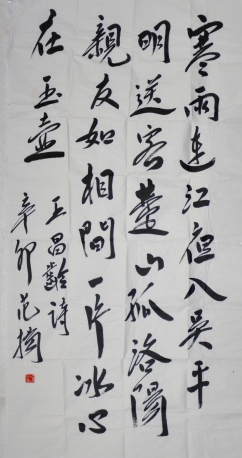 寒雨連江夜入吳平
明送客楚山孤洛陽
親友如相問一片冰心
在玉壺
王昌齡詩
辛卯范